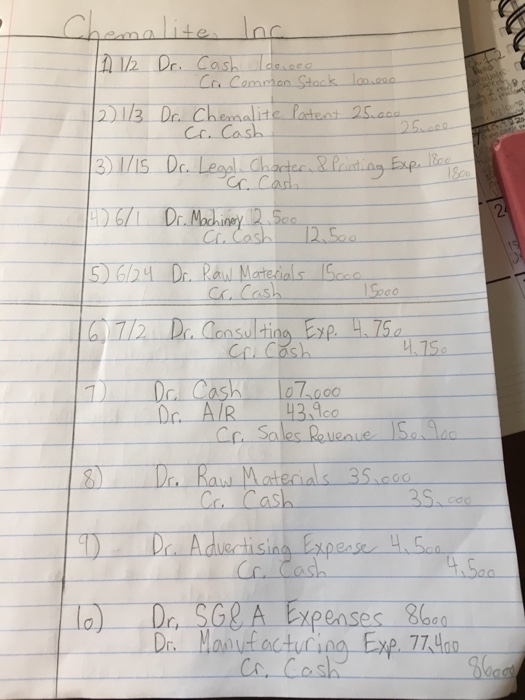 Chemalite, Inc
1) 1/2 Dr. Cash 100,000
Cr. Common Stock 100,000
2) 1/3 Dr. Chemalite Patent 25,000
Cr. Cash 25,000
3) 1/15 Dr. Legal, Charter, & Printing Exp. 1800
Cr. Cash 1800
4) 6/1 Dr. Machinery 12,500
Cr. Cash 12,500
5) 6/24 Dr. Raw Materials 15000
Cr. Cash 15000
6) 7/2 Dr. Consulting Exp. 4,750
Cr. Cash 4,750
7) Dr. Cash 107,000
Dr. A/R 43,900
Cr. Sales Revenue 150,900
8) Dr. Raw Materials 35,000
Cr. Cash 35,000
9) Dr. Advertising Expense 4,500
Cr. Cash 4,500
10) Dr. SG&A Expenses 8600
Dr. Manufacturing Exp. 77,400
Cr. Cash 86000